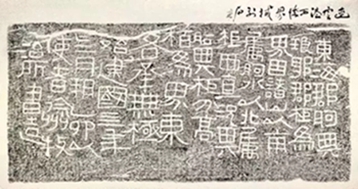 界域刻石
東海郡朐與
琅邪郡柜為
界因諸山以南
屬朐水以北屬
柜西直況其
朐與柜分高
為界東
各承無極
始建國年
月朔乙卯
使者徐州牧
治所書造